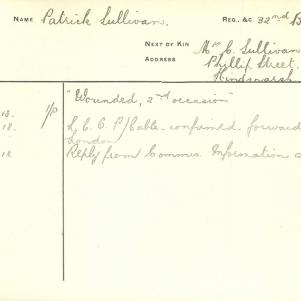 NAME Patrick Sullivan. REG., &C. 32nd B
NEXT OF KIN Mrs C. Sullivan
ADDRESS Phillip Street.
Hindmarsh
"Wounded, 2nd occasion"
18. 1/P L. C. C. P/Cable confirmed. forward
London
18 Reply from Commrs Information